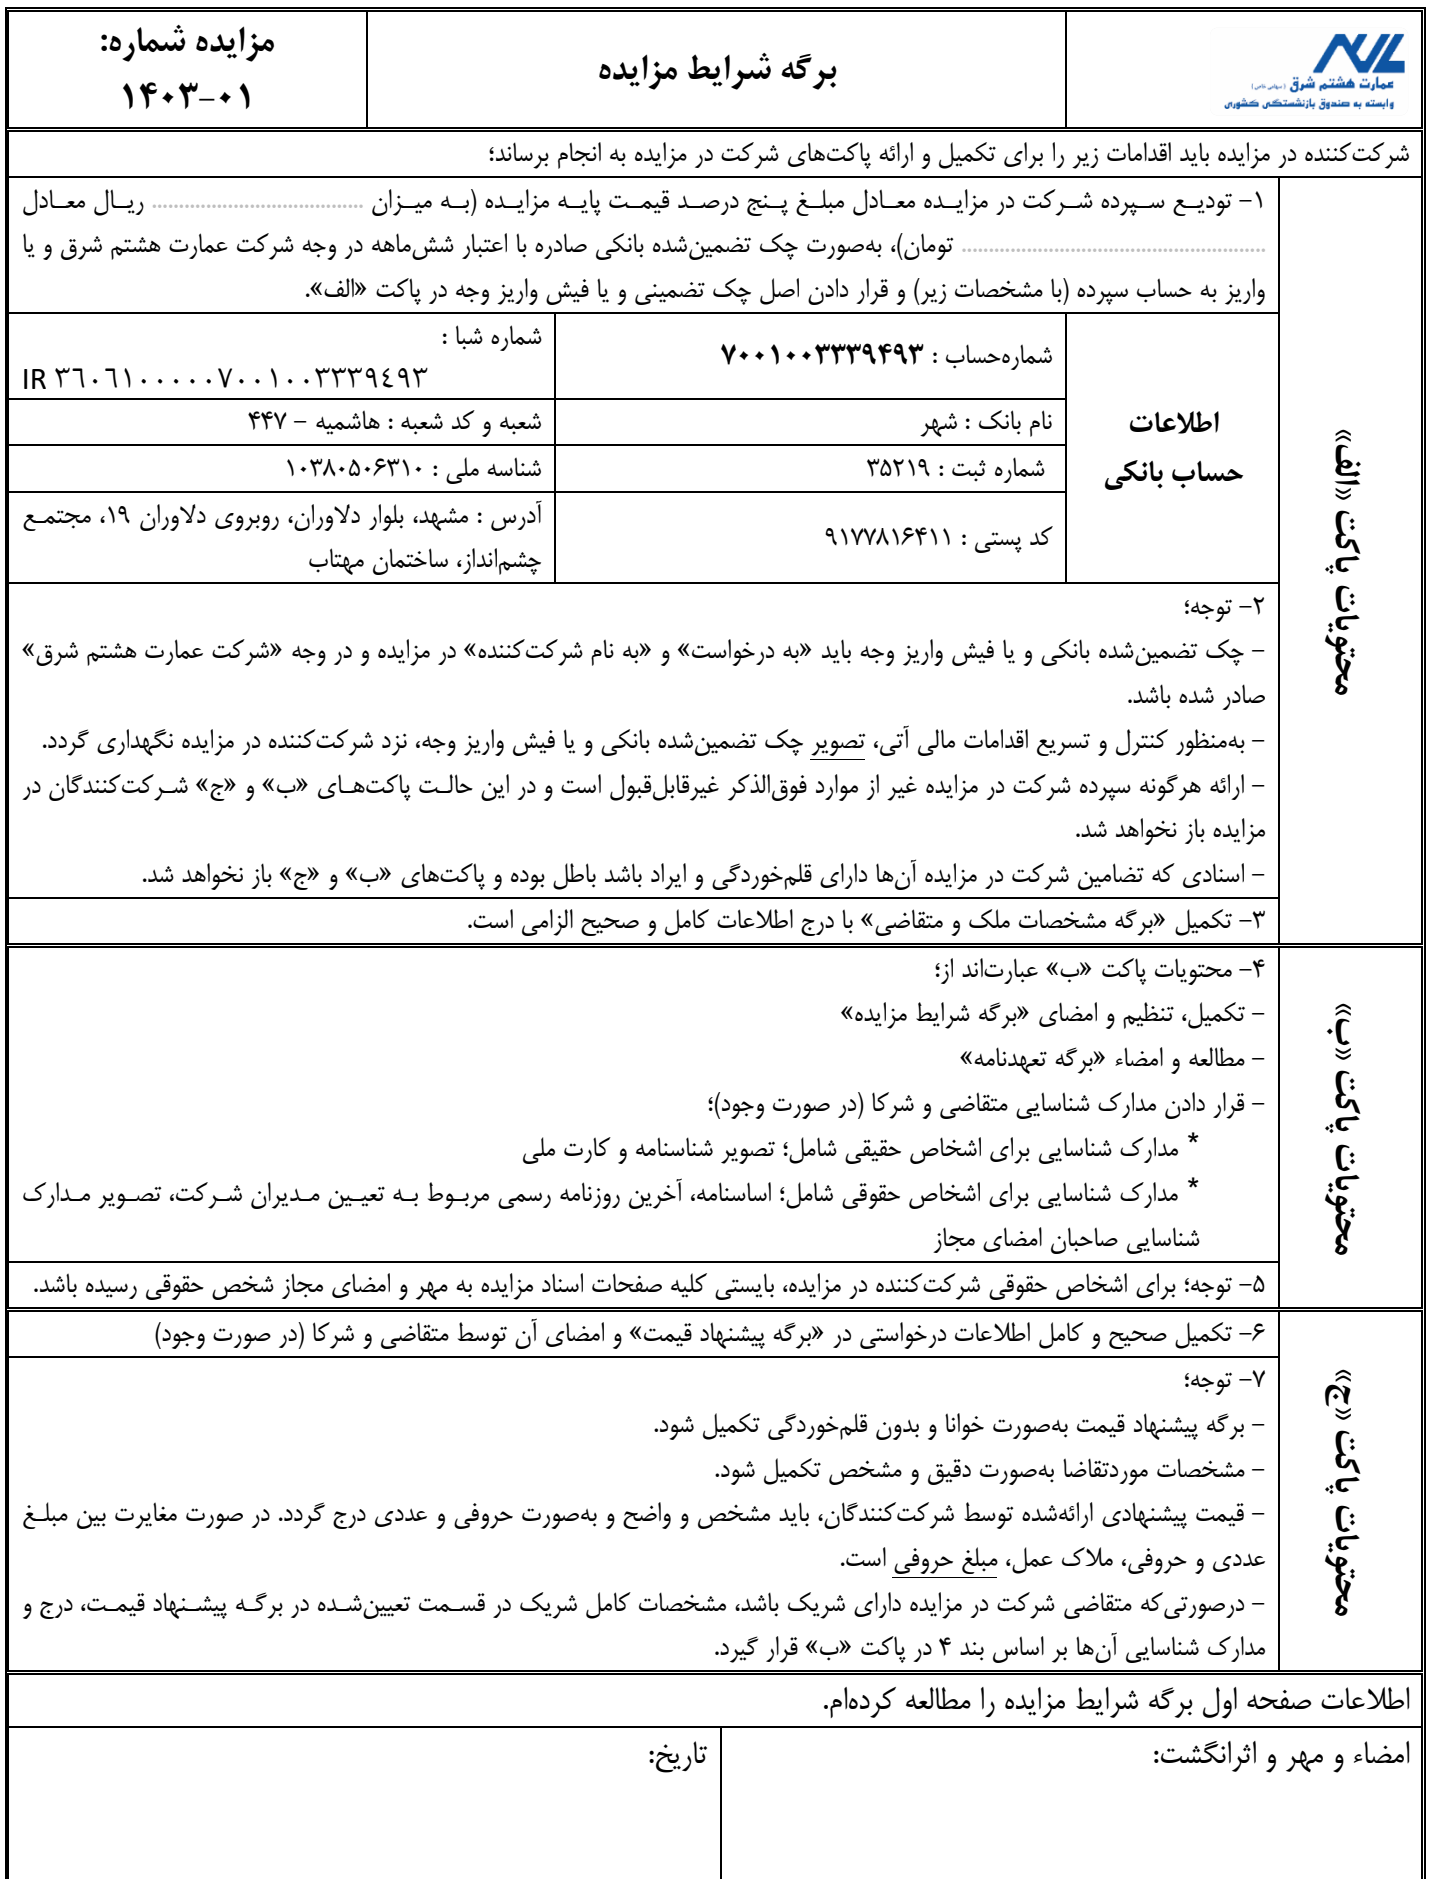 عمارت هشتم شرق (سهامی خاص)
وابسته به صندوق بازنشستگی کشوری
برگه شرایط مزایده
مزایده شماره:
۱۴۰۳-۰۱
شرکت‌کننده در مزایده باید اقدامات زیر را برای تکمیل و ارائه پاکت‌های شرکت در مزایده به انجام برساند؛
محتویات پاکت «الف»
۱- تودیع سپرده شرکت در مزایده معادل مبلغ پنج درصد قیمت پایه مزایده (به میزان ................................. ریال معادل
................................................ تومان)، به‌صورت چک تضمین‌شده بانکی صادره با اعتبار شش‌ماهه در وجه شرکت عمارت هشتم شرق و یا
واریز به حساب سپرده (با مشخصات زیر) و قرار دادن اصل چک تضمینی و یا فیش واریز وجه در پاکت «الف».
اطلاعات
حساب بانکی
شماره‌حساب : ۷۰۰۱۰۰۳۳۳۹۴۹۳
شماره شبا :
IR ٣٦٠٦١٠٠٠٠٠٧٠٠١٠٠٣٣٣٩٤٩٣
نام بانک : شهر
شعبه و کد شعبه : هاشمیه – ۴۴۷
شماره ثبت : ۳۵۲۱۹
شناسه ملی : ۱۰۳۸۰۵۰۶۳۱۰
کد پستی : ۹۱۷۷۸۱۶۴۱۱
آدرس : مشهد، بلوار دلاوران، روبروی دلاوران ۱۹، مجتمع
چشم‌انداز، ساختمان مهتاب
۲- توجه؛
- چک تضمین‌شده بانکی و یا فیش واریز وجه باید «به درخواست» و «به نام شرکت‌کننده» در مزایده و در وجه «شرکت عمارت هشتم شرق»
صادر شده باشد.
- به‌منظور کنترل و تسریع اقدامات مالی آتی، تصویر چک تضمین‌شده بانکی و یا فیش واریز وجه، نزد شرکت‌کننده در مزایده نگهداری گردد.
- ارائه هرگونه سپرده شرکت در مزایده غیر از موارد فوق‌الذکر غیرقابل‌قبول است و در این حالت پاکت‌های «ب» و «ج» شرکت‌کنندگان در
مزایده باز نخواهد شد.
- اسنادی که تضامین شرکت در مزایده آن‌ها دارای قلم‌خوردگی و ایراد باشد باطل بوده و پاکت‌های «ب» و «ج» باز نخواهد شد.
۳- تکمیل «برگه مشخصات ملک و متقاضی» با درج اطلاعات کامل و صحیح الزامی است.
محتویات پاکت «ب»
۴- محتویات پاکت «ب» عبارت‌اند از؛
- تکمیل، تنظیم و امضای «برگه شرایط مزایده»
- مطالعه و امضاء «برگه تعهدنامه»
- قرار دادن مدارک شناسایی متقاضی و شرکا (در صورت وجود)؛
* مدارک شناسایی برای اشخاص حقیقی شامل؛ تصویر شناسنامه و کارت ملی
* مدارک شناسایی برای اشخاص حقوقی شامل؛ اساسنامه، آخرین روزنامه رسمی مربوط به تعیین مدیران شرکت، تصویر مدارک
شناسایی صاحبان امضای مجاز
۵- توجه؛ برای اشخاص حقوقی شرکت‌کننده در مزایده، بایستی کلیه صفحات اسناد مزایده به مهر و امضای مجاز شخص حقوقی رسیده باشد.
محتویات پاکت «ج»
۶- تکمیل صحیح و کامل اطلاعات درخواستی در «برگه پیشنهاد قیمت» و امضای آن توسط متقاضی و شرکا (در صورت وجود)
۷- توجه؛
- برگه پیشنهاد قیمت به‌صورت خوانا و بدون قلم‌خوردگی تکمیل شود.
- مشخصات موردتقاضا به‌صورت دقیق و مشخص تکمیل شود.
- قیمت پیشنهادی ارائه‌شده توسط شرکت‌کنندگان، باید مشخص و واضح و به‌صورت حروفی و عددی درج گردد. در صورت مغایرت بین مبلغ
عددی و حروفی، ملاک عمل، مبلغ حروفی است.
- درصورتی‌که متقاضی شرکت در مزایده دارای شریک باشد، مشخصات کامل شریک در قسمت تعیین‌شده در برگه پیشنهاد قیمت، درج و
مدارک شناسایی آن‌ها بر اساس بند ۴ در پاکت «ب» قرار گیرد.
اطلاعات صفحه اول برگه شرایط مزایده را مطالعه کرده‌ام.
امضاء و مهر و اثرانگشت:
تاریخ: